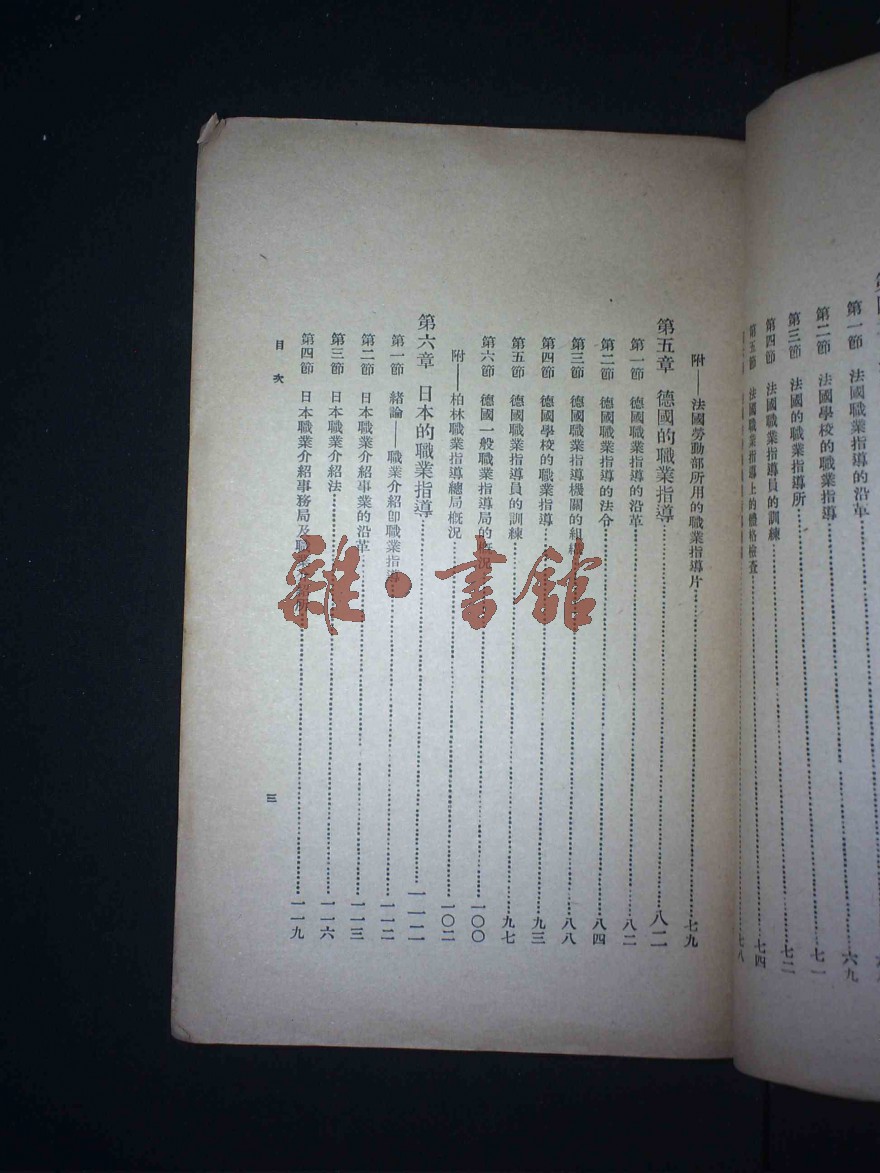 第一節 法國職業指導的沿革 六九
第二節 法國學校的職業指導 七一
第三節 法國的職業指導所 七二
第四節 法國職業指導員的訓練 七四
第五節 法國職業指導上的體格檢查 七八
附——法國勞動部所用的職業指導片 七九
第五章 德國的職業指導 八二
第一節 德國職業指導的沿革 八二
第二節 德國職業指導的法令 八四
第三節 德國職業指導機關的組織 八八
第四節 德國學校的職業指導 九三
第五節 德國職業指導員的訓練 九七
第六節 德國一般職業指導局的概況 一〇〇
附——柏林職業指導總局概況 一〇二
第六章 日本的職業指導 一一二
第一節 緒論——職業介紹卽職業指導 一一二
第二節 日本職業介紹事業的沿革 一一三
第三節 日本職業介紹法 一一六
第四節 日本職業介紹事務局及職業介紹所 一一九
目次
三
雜·書館